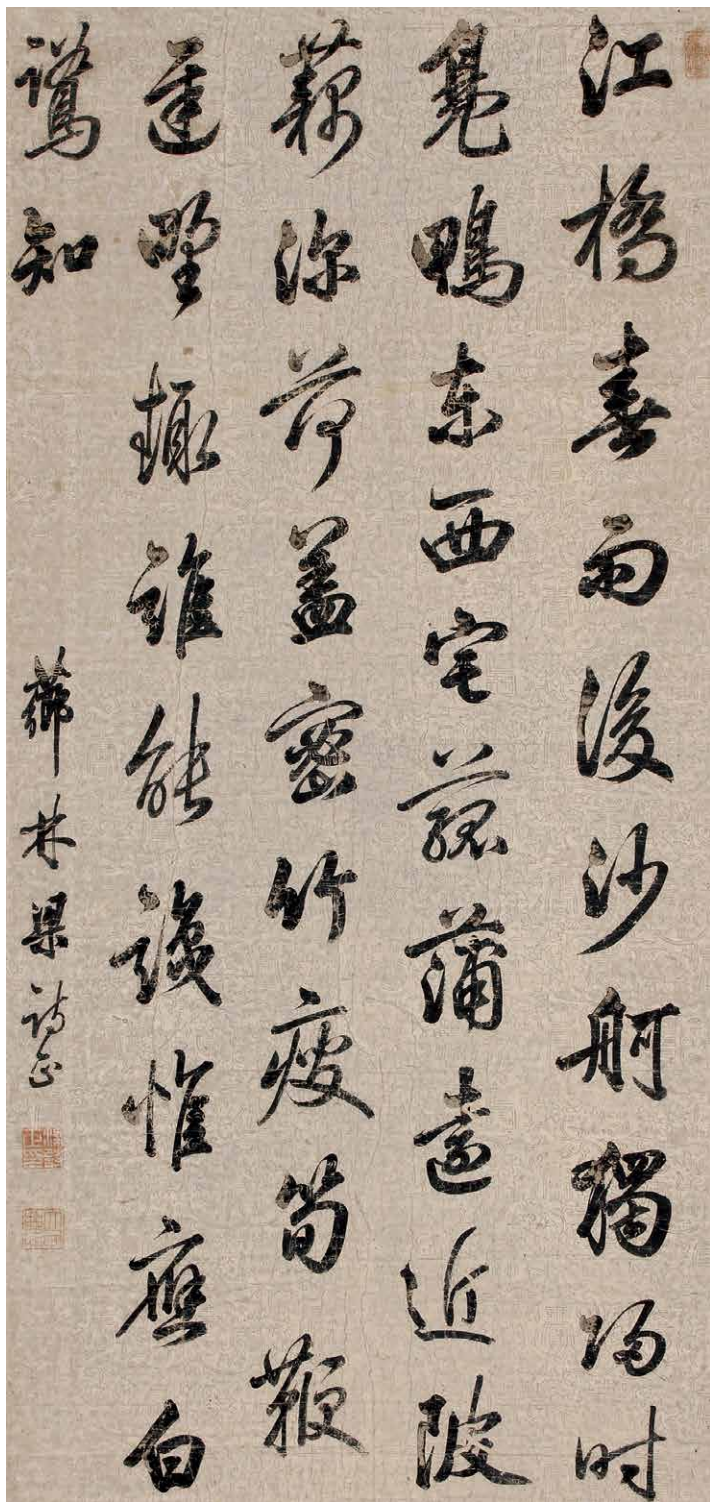 江橋春雨後沙舸獨歸時
鳧鴨東西宅菰蒲遠近陂
藕深荷蓋密竹瘦筍鞭
遲野趣誰能識惟應白
鷺知
薌林梁詩正